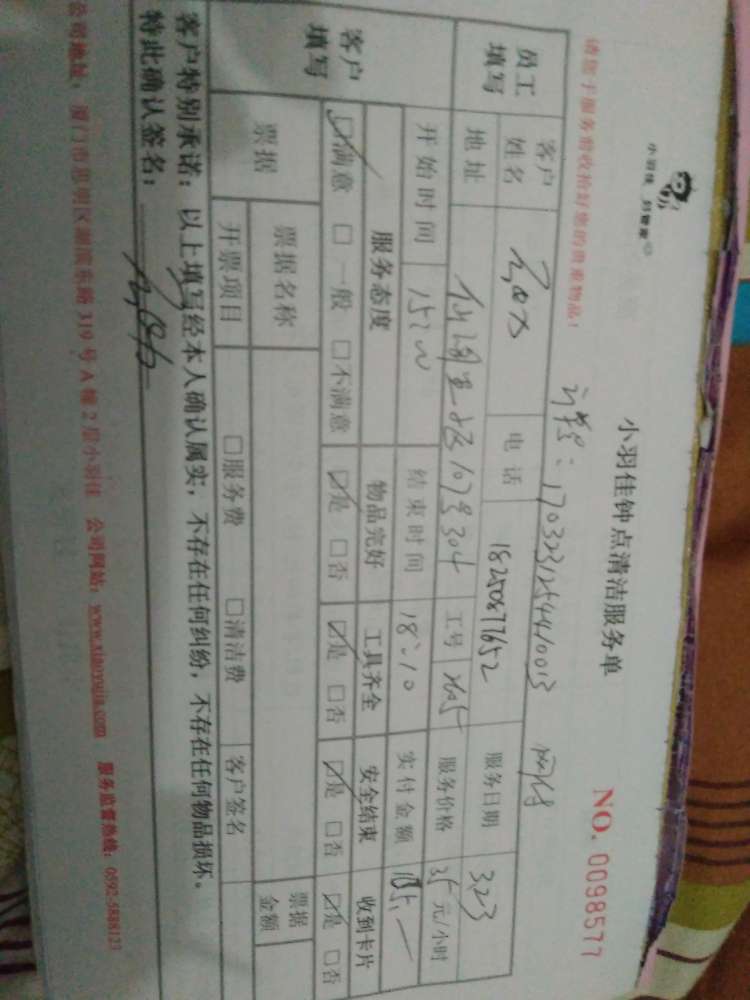 小羽佳 好管家
小羽佳钟点清洁服务单
NO. 0098577
请您于服务前收拾好您的贵重物品！
1703231254410013
员工填写
客户姓名
电话 18250877652
服务日期 3.23
地址
107号304
工号 2605
服务价格 35元/小时
开始时间 15:00
结束时间 18:10
实付金额
客户填写
服务态度 物品完好 工具齐全 安全结束 收到卡片
☑满意 □一般 □不满意 ☑是 □否 ☑是 □否 ☑是 □否 ☑是 □否
票据
票据名称
票据金额
开票项目 □服务费 □清洁费 客户签名
客户特别承诺：以上填写经本人确认属实，不存在任何纠纷，不存在任何物品损坏。
特此确认签名：
公司地址：厦门市思明区湖滨东路319号A幢2层小羽佳 公司网站：www.xiaoyujia.com 服务监督热线：0592-5888123